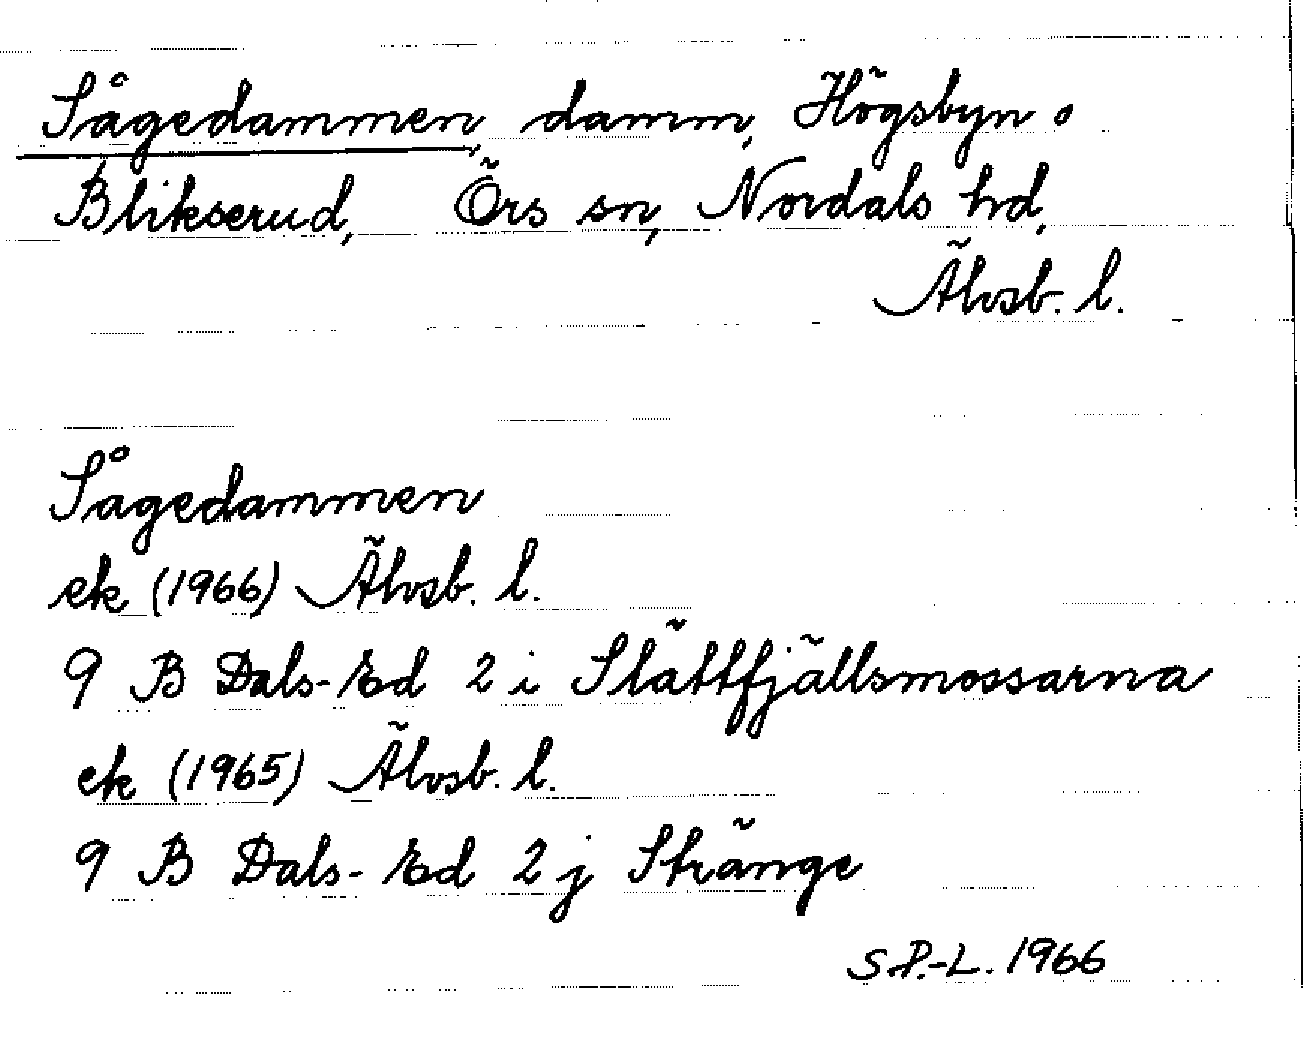 Sågedammen, damm, Högsbyn o
Blikserud, Örs sn, Nordals hd,
Älvsb. l.
Sågedammen
ek (1966) Älvsb. l.
9 B Dals-Ed 2 i Slättfjällsmossarna
ek (1965) Älvsb. l.
9 B Dals-Ed 2 j Stränge
S.P.-L. 1966